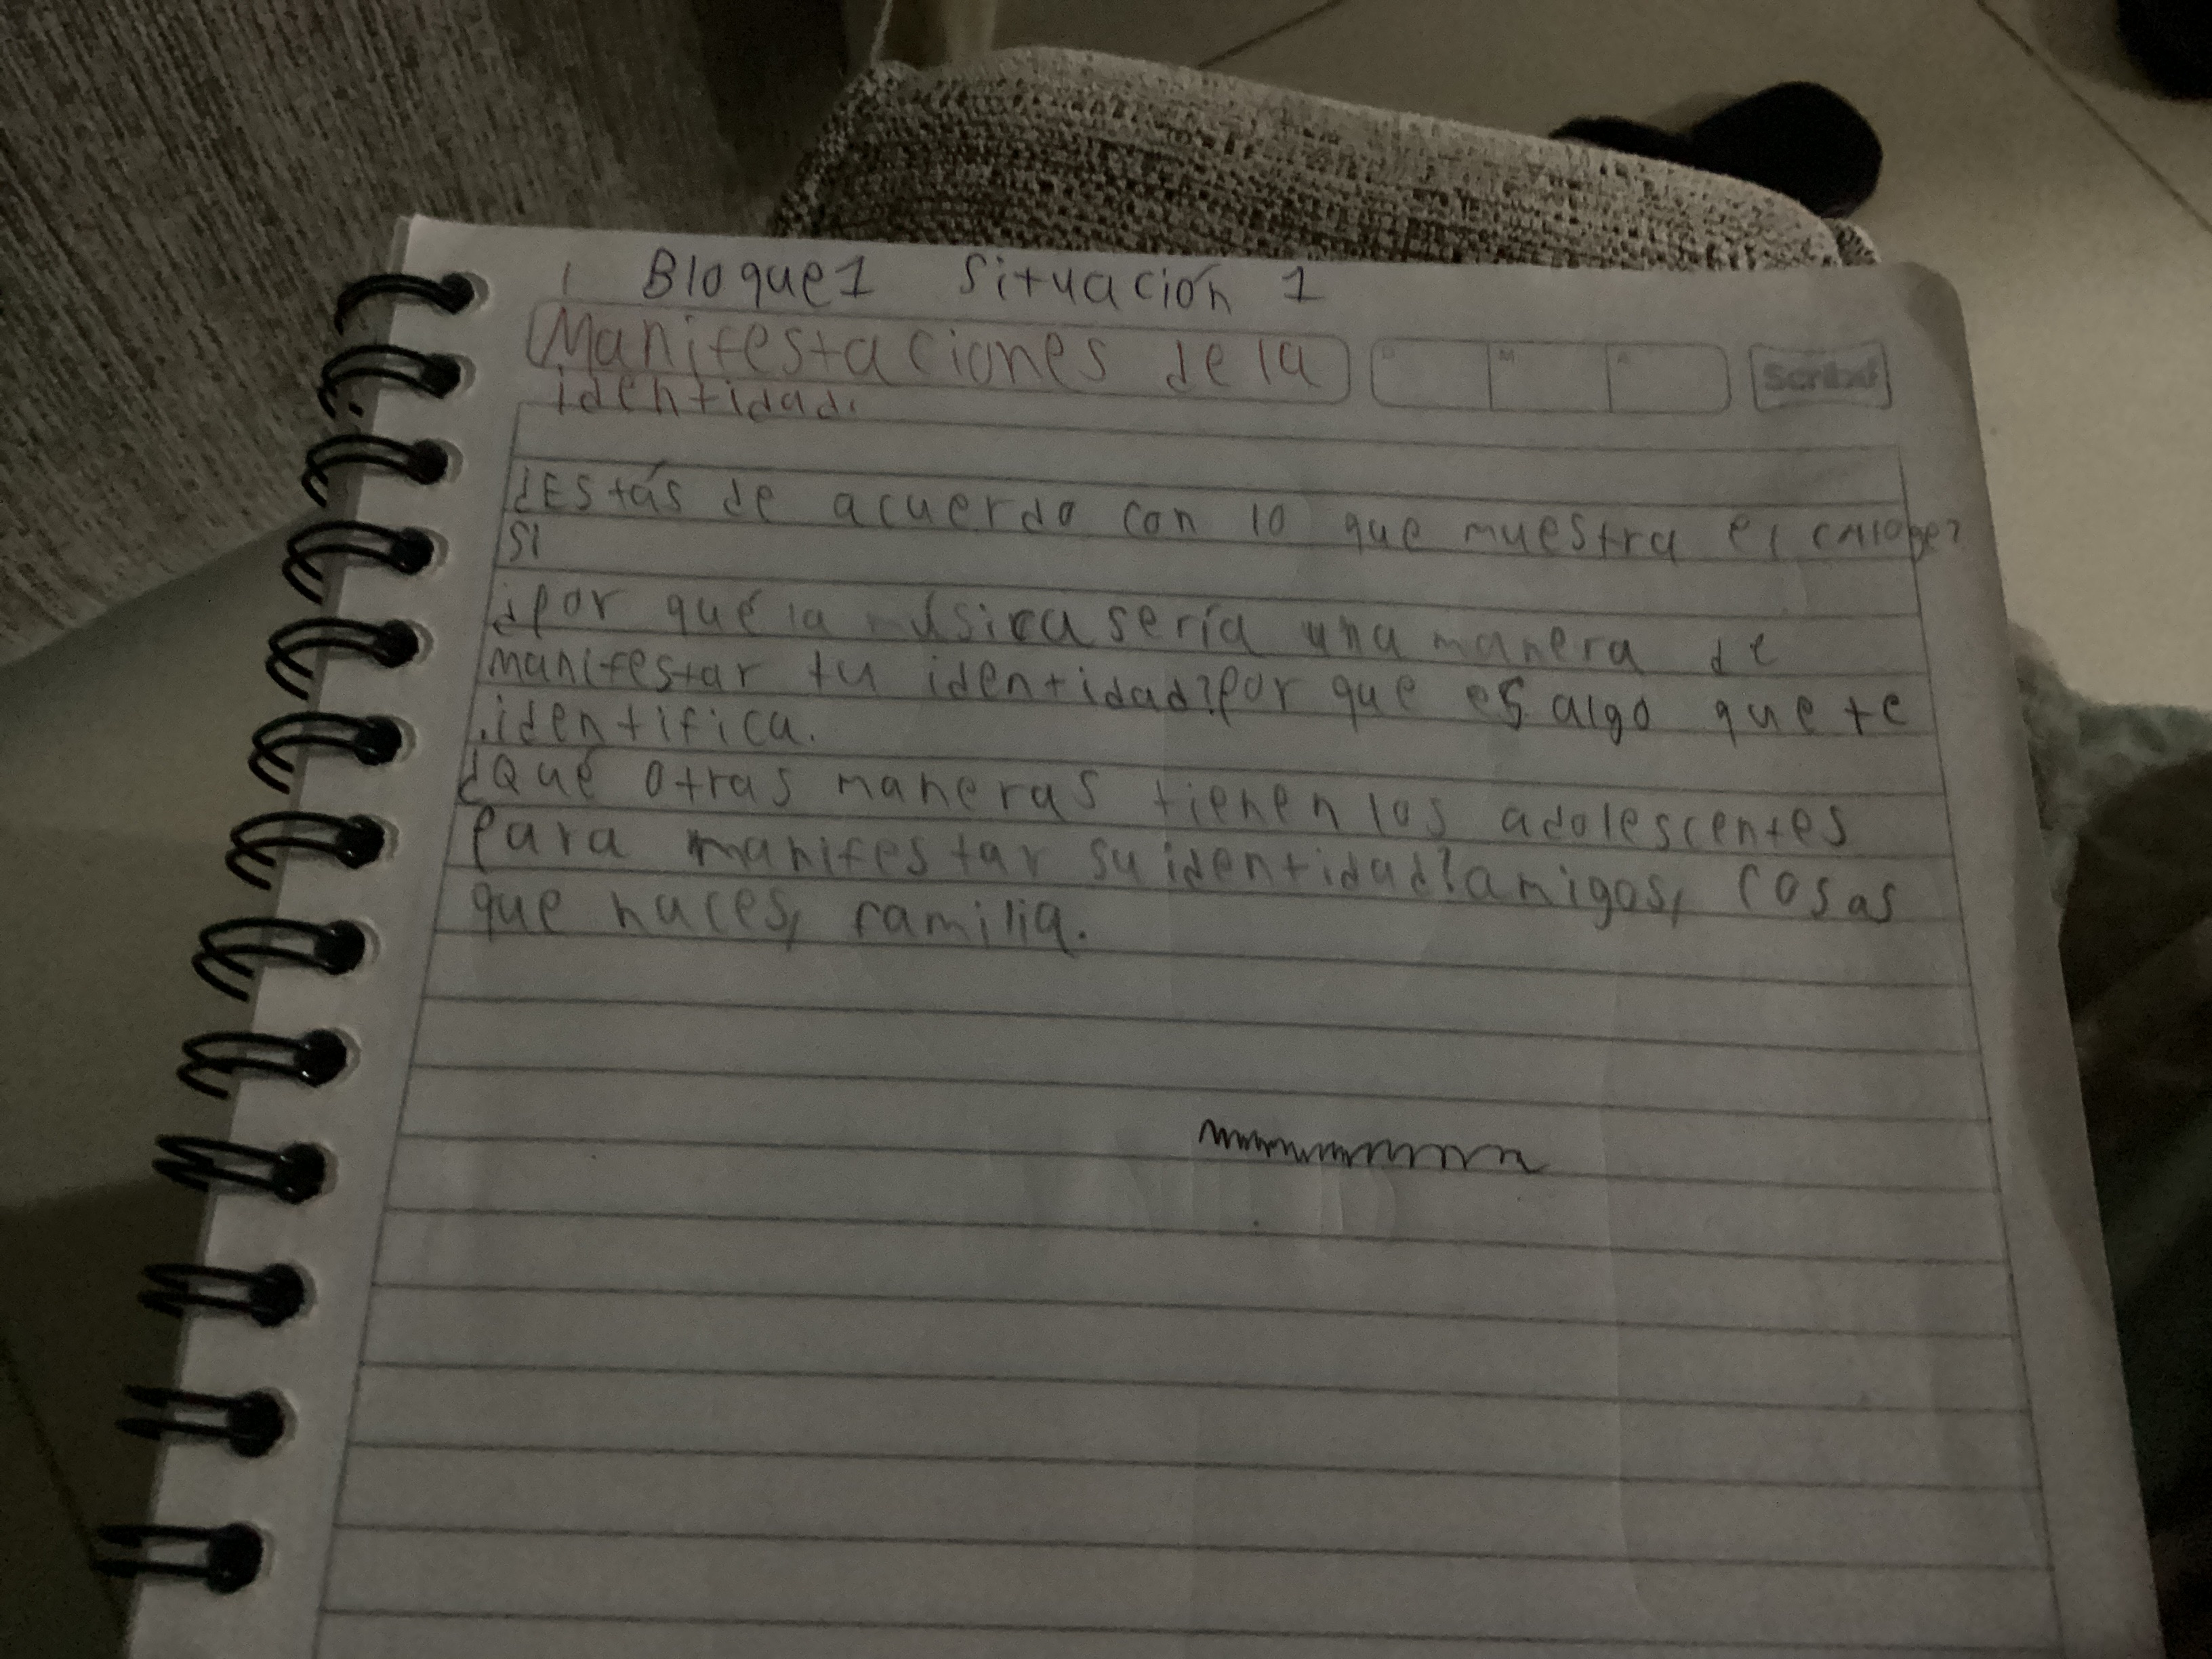 Bloque 1 Situación 1
Manifestaciones de la
identidad.
D M A
Scribe
¿Estás de acuerdo con lo que muestra el
SI
¿por qué la música sería una manera de
manifestar tu identidad? por que es algo que te
identifica.
¿Qué otras maneras tienen los adolescentes
para manifestar su identidad? amigos, cosas
que haces, familia.